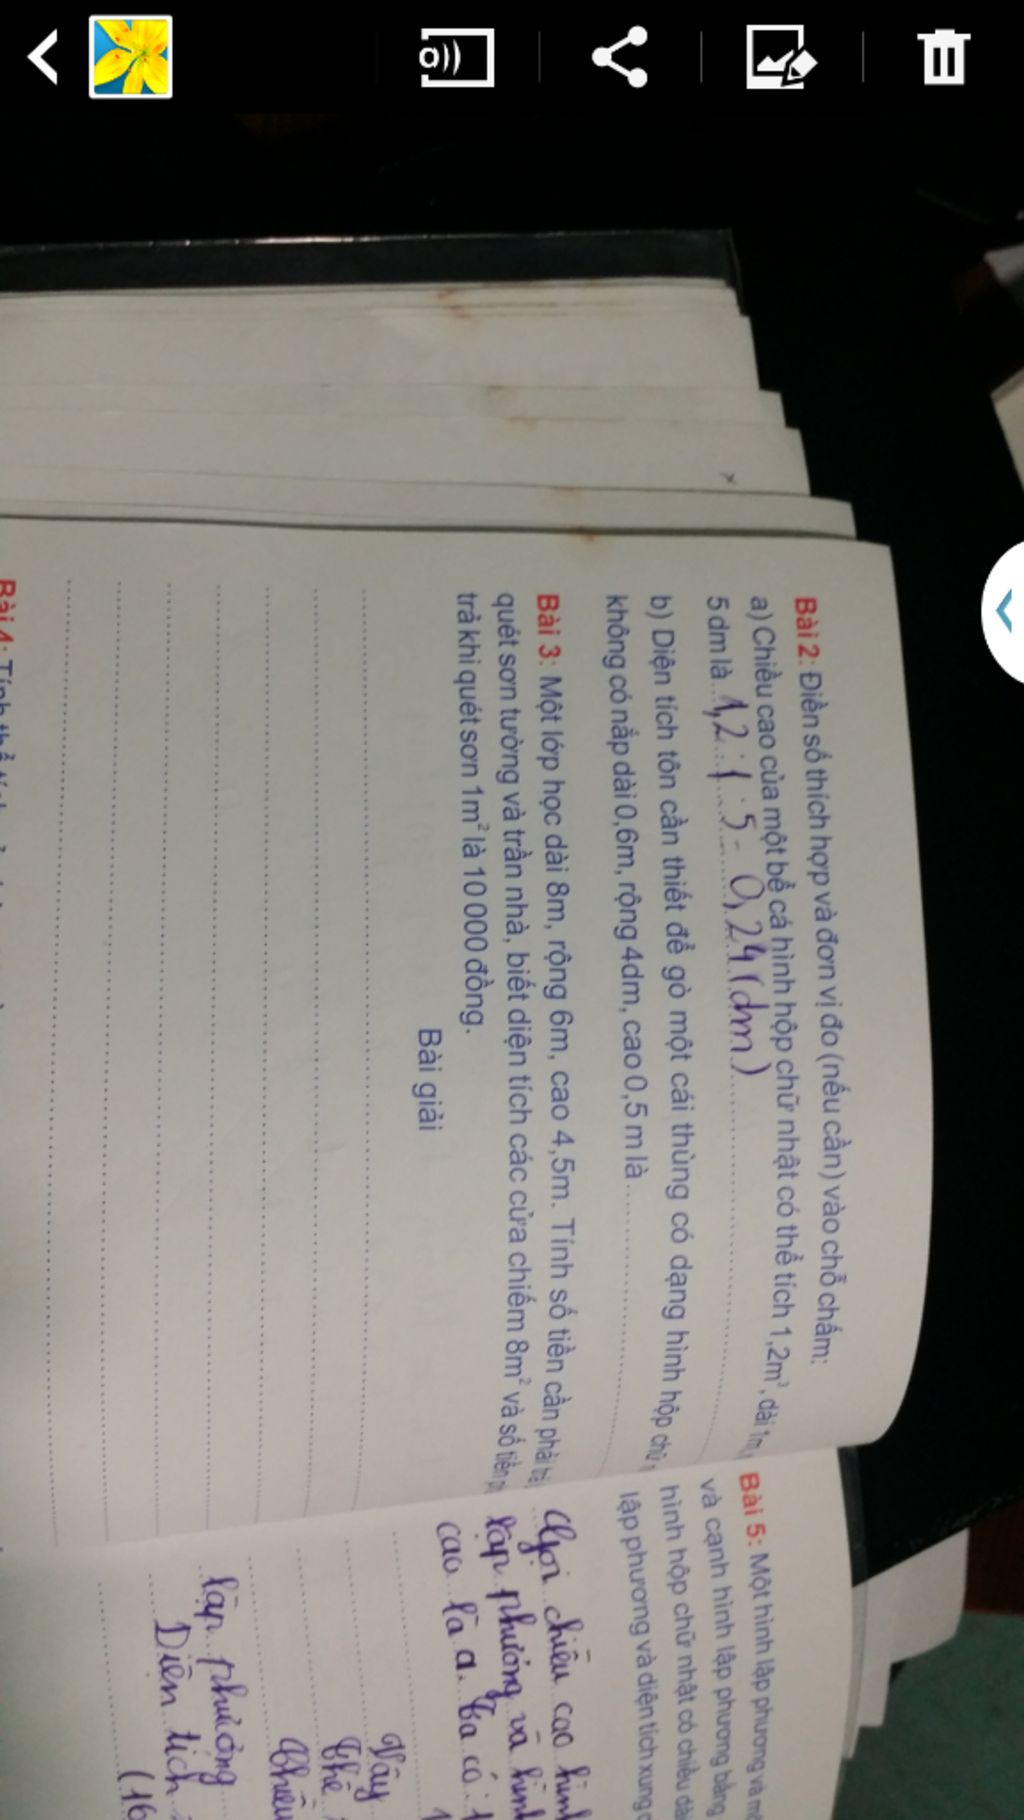 Bài 2: Điền số thích hợp và đơn vị đo (nếu cần) vào chỗ chấm:
a) Chiều cao của một bể cá hình hộp chữ nhật có thể tích 1,2m³, dài 1m,
5 dm là 1,2 : 1 : 5 = 0,24 (dm)
b) Diện tích tôn cần thiết để gò một cái thùng có dạng hình hộp chữ
không có nắp dài 0,6m, rộng 4dm, cao 0,5 m là
Bài 3: Một lớp học dài 8m, rộng 6m, cao 4,5m. Tính số tiền cần phải trả
quét sơn tường và trần nhà, biết diện tích các cửa chiếm 8m² và số tiền
trả khi quét sơn 1m² là 10 000 đồng.
Bài giải
Bài 4: Tính thể tích
Bài 5: Một hình lập phương và
và cạnh hình lập phương bằng
hình hộp chữ nhật có chiều dài
lập phương và diện tích xung
Gọi chiều cao hình
lập phương và hình
cao là a. Ta có:
Vậy
Thể
Chiều
lập phương
Diện tích
(16